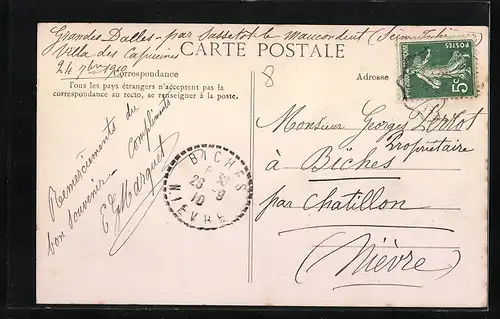 Grandes Dalles - par Sassetot le Mauconduit (Seine Inférieure)
Villa des Capucines
24 7bre 1910
CARTE POSTALE
Correspondance
Tous les pays étrangers n'acceptent pas la
correspondance au recto, se renseigner à la poste.
Adresse
8
POSTES
5c
Remerciements du
bon souvenir - Compliments
E G Marquet
BICHES
26 - 9
10
NIEVRE
Monsieur Georges Perrot
Propriétaire
à Biches
par Chatillon
(Nièvre)